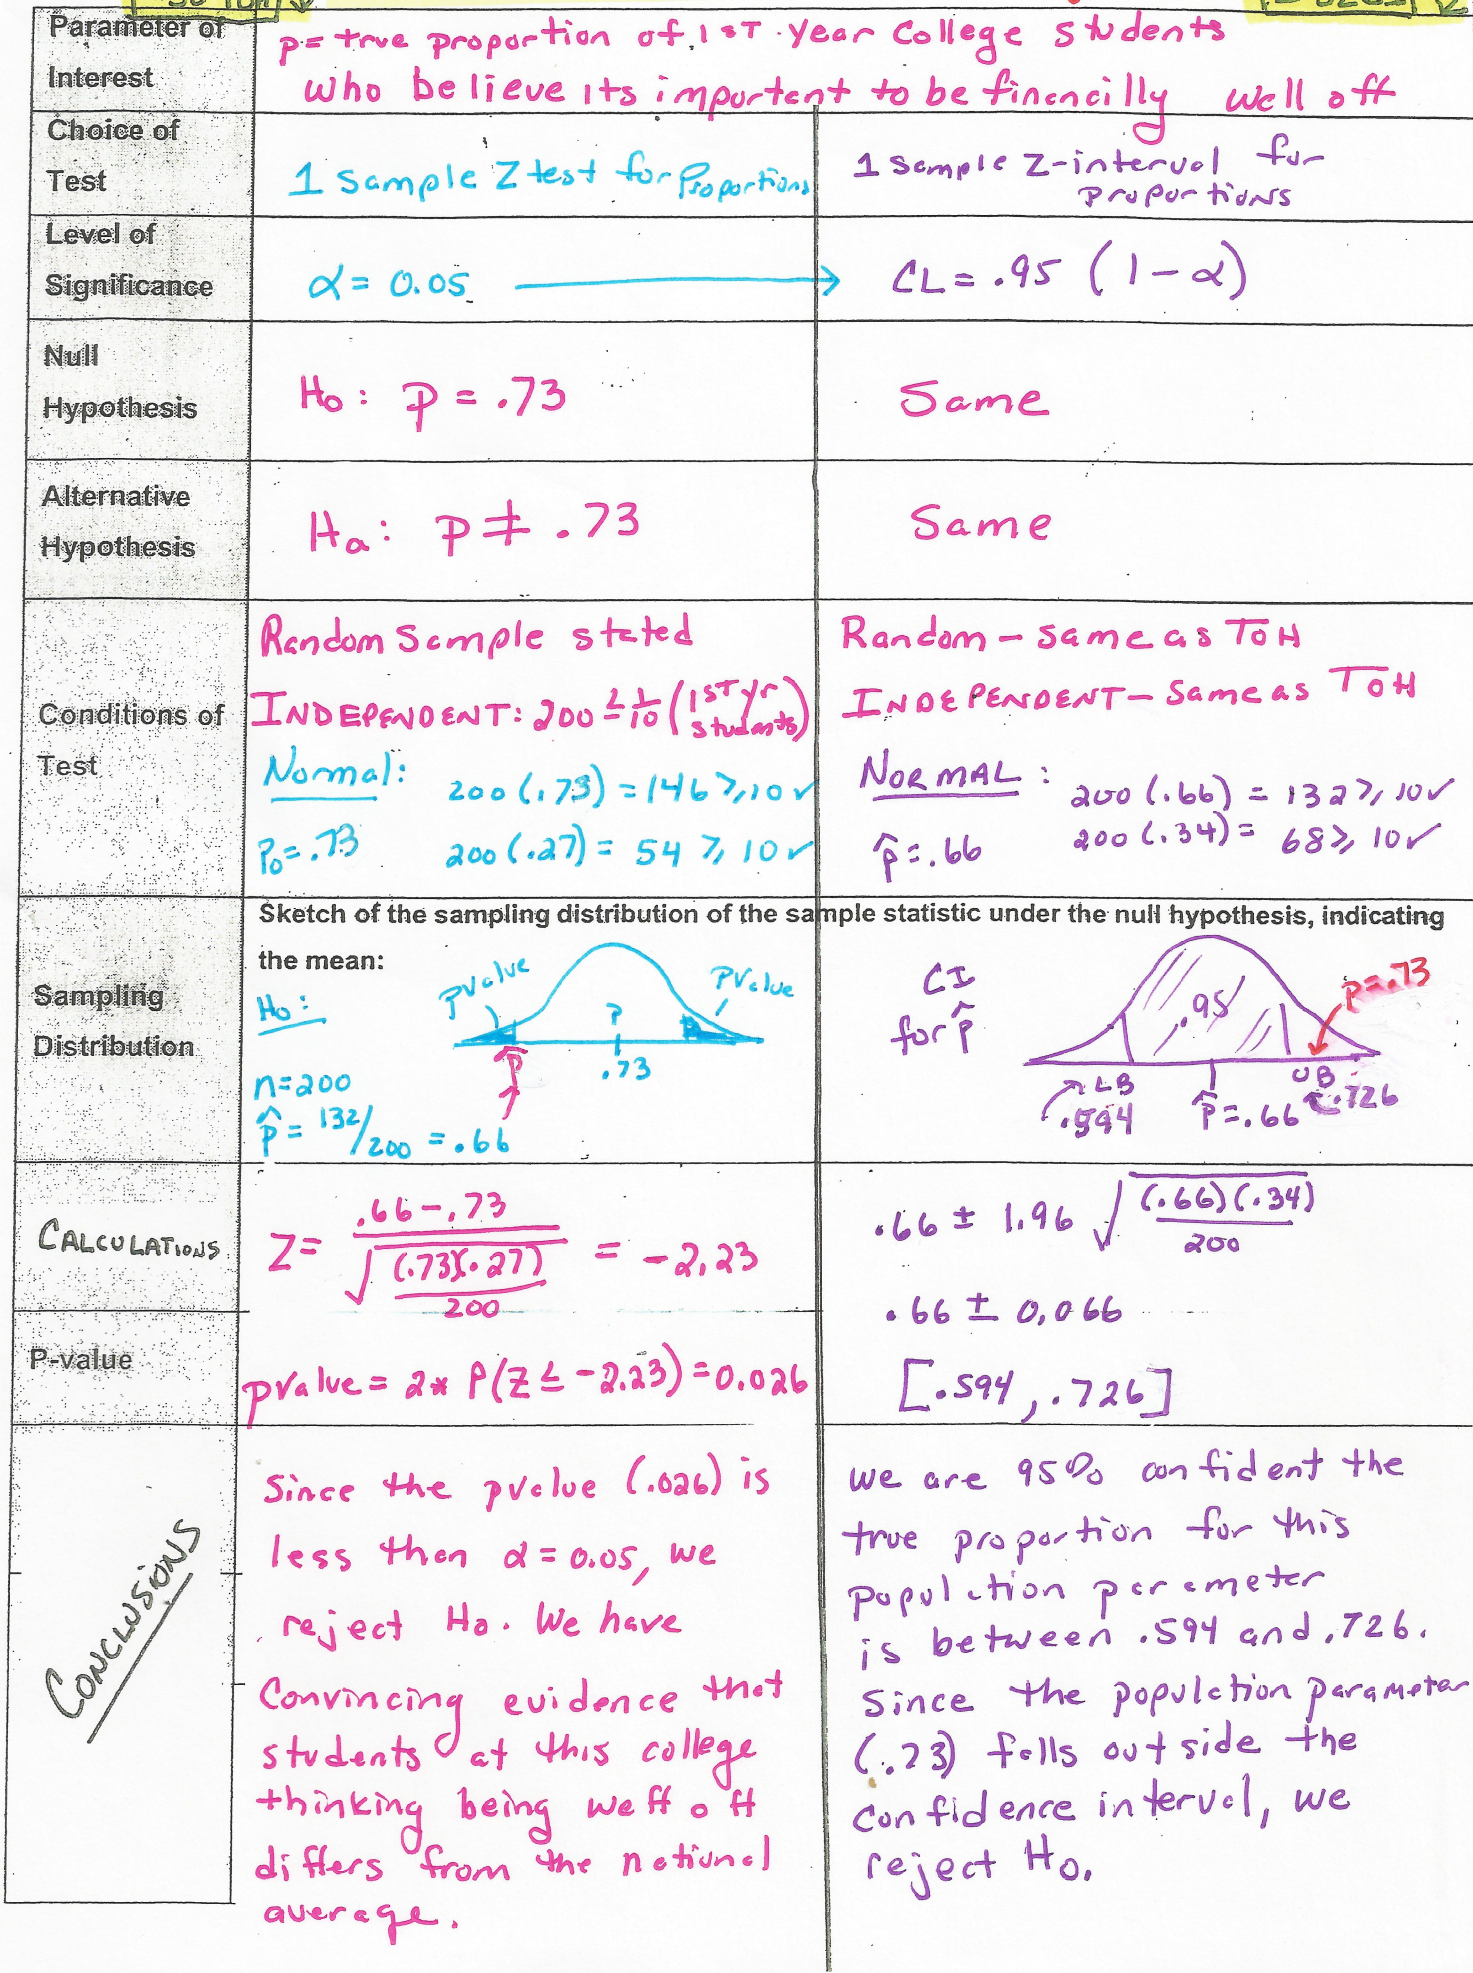 Parameter of
Interest
p = true proportion of 1ST year College students
who believe its important to be finencilly well off
Choice of
Test
1 sample Z test for Proportions
1 sample Z-interval for
proportions
Level of
Significance
α = 0.05
CL = .95 (1-α)
Null
Hypothesis
Ho: p = .73
Same
Alternative
Hypothesis
Ha: p ≠ .73
Same
Conditions of
Test
Random Sample stated
INDEPENDENT: 200 ≤ 1/10 (1ST yr students)
Normal: 200 (.73) = 146 ≥ 10 ✓
Po = .73 200 (.27) = 54 ≥ 10 ✓
Random - same as TOH
INDEPENDENT - Same as TOH
NORMAL: 200 (.66) = 132 ≥ 10 ✓
p̂ = .66 200 (.34) = 68 ≥ 10 ✓
Sampling
Distribution
Sketch of the sampling distribution of the sample statistic under the null hypothesis, indicating
the mean:
Ho:
pvalue
pvalue
P
.73
p̂
n=200
p̂ = 132/200 = .66
CI
for p̂
.95
p=.73
LB
UB
.594
p̂=.66
.726
CALCULATIONS
Z = (.66-.73) / √((.73)(.27)/200) = -2.23
.66 ± 1.96 √((.66)(.34)/200)
.66 ± 0.066
P-value
pvalue = 2* P(Z ≤ -2.23) = 0.026
[.594, .726]
CONCLUSIONS
Since the pvalue (.026) is
less than α = 0.05, we
reject Ho. We have
Convincing evidence that
students at this college
thinking being weff off
differs from the national
average.
we are 95% confident the
true proportion for this
population parameter
is between .594 and .726.
Since the population parameter
(.73) falls outside the
confidence interval, we
reject Ho.